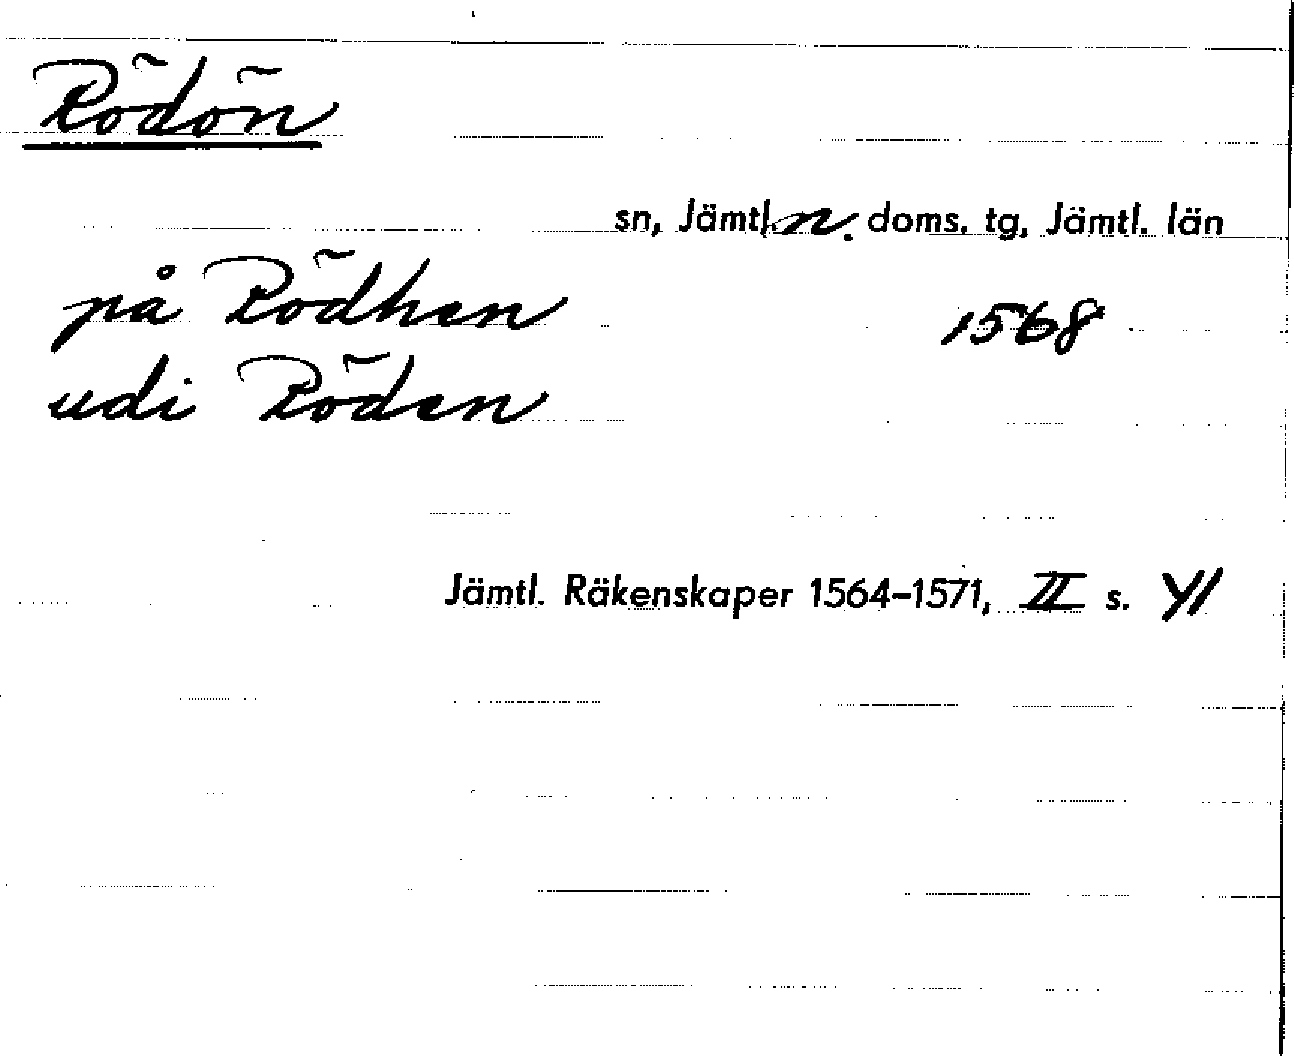 Rödön
sn, Jämtl. n. doms. tg, Jämtl. län
på Rödhen 1568
udi Röden
Jämtl. Räkenskaper 1564-1571, II s. VI